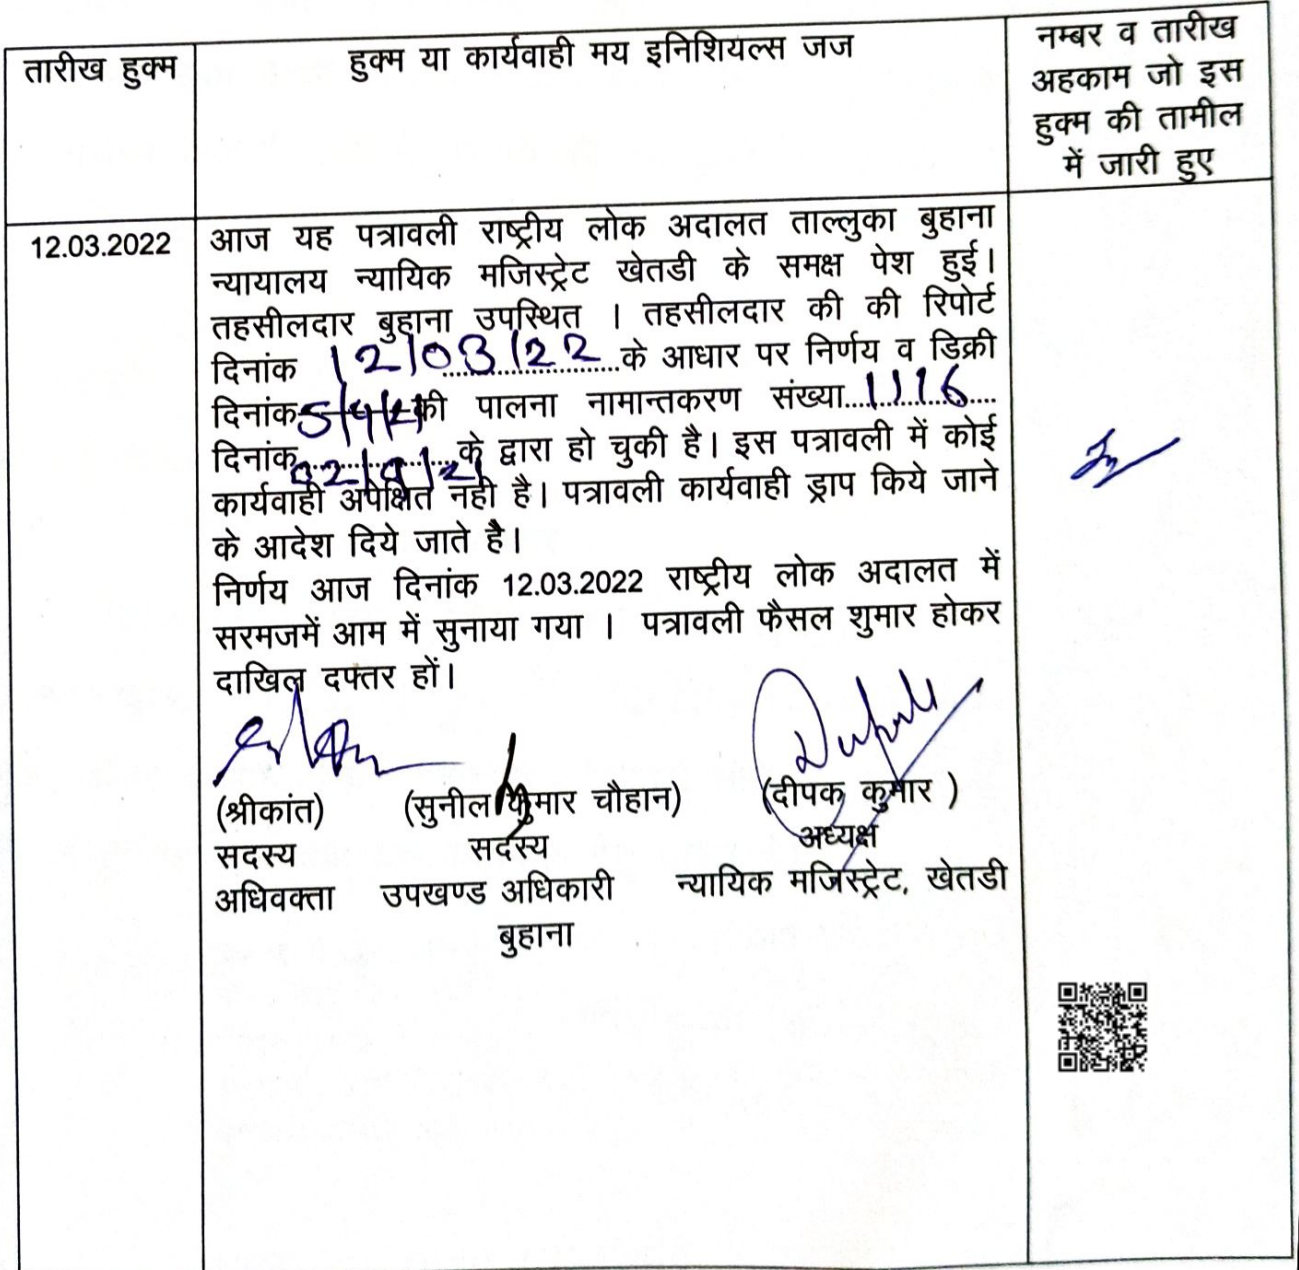 तारीख हुक्म
हुक्म या कार्यवाही मय इनिशियल्स जज
नम्बर व तारीख
अहकाम जो इस
हुक्म की तामील
में जारी हुए
12.03.2022
आज यह पत्रावली राष्ट्रीय लोक अदालत ताल्लुका बुहाना
न्यायालय न्यायिक मजिस्ट्रेट खेतडी के समक्ष पेश हुई।
तहसीलदार बुहाना उपस्थित । तहसीलदार की की रिपोर्ट
दिनांक 12/03/22 के आधार पर निर्णय व डिक्री
दिनांक 5/4/21 की पालना नामान्तकरण संख्या 1116
दिनांक 02/9/21 के द्वारा हो चुकी है। इस पत्रावली में कोई
कार्यवाही अपेक्षित नही है। पत्रावली कार्यवाही ड्राप किये जाने
के आदेश दिये जाते है।
निर्णय आज दिनांक 12.03.2022 राष्ट्रीय लोक अदालत में
सरमजमें आम में सुनाया गया । पत्रावली फैसल शुमार होकर
दाखिल दफ्तर हों।
(श्रीकांत) (सुनील कुमार चौहान) (दीपक कुमार )
सदस्य सदस्य अध्यक्ष
अधिवक्ता उपखण्ड अधिकारी न्यायिक मजिस्ट्रेट, खेतडी
बुहाना